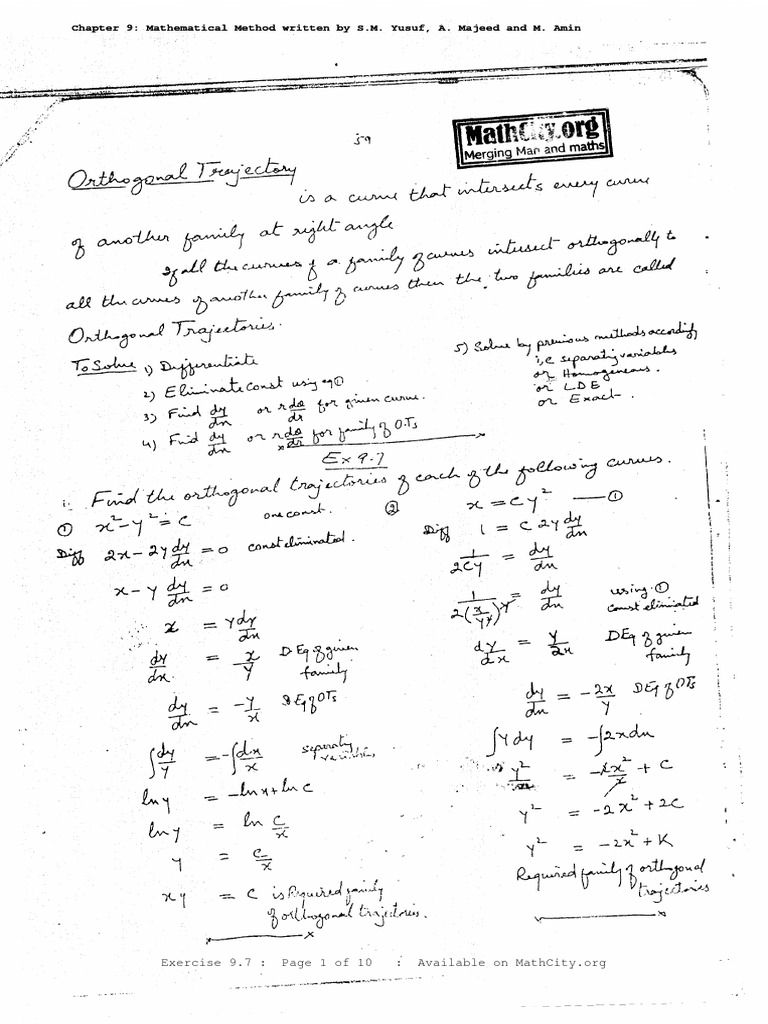 Chapter 9: Mathematical Method written by S.M. Yusuf, A. Majeed and M. Amin
59
MathCity.org
Merging Man and maths
Orthogonal Trajectory
is a curve that intersects every curve
of another family at right angle
If all the curves of a family of curves intersect orthogonally to
all the curves of another family of curves then the two families are called
Orthogonal Trajectories.
To Solve 1) Differentiate
2) Eliminate const using eq ①
3) Find dy/dx or r dθ/dr for given curve.
4) Find dy/dx or r dθ/dr for family of O.Ts
5) Solve by previous methods according
i,e separating variables
or Homogeneous.
or LDE
or Exact.
Ex 9.7
Find the orthogonal trajectories of each of the following curves.
① x² - y² = c one const.
Diff 2x - 2y dy/dx = 0 const eliminated.
x - y dy/dx = 0
x = y dy/dx
dy/dx = x/y D Eq of given family
dy/dx = -y/x D Eq of OTs
∫ dy/y = -∫ dx/x separating variables
ln y = -ln x + ln c
ln y = ln c/x
y = c/x
xy = c is Required family
of orthogonal trajectories.
② x = cy² — ①
Diff 1 = c 2y dy/dx
1/2cy = dy/dx
1/2(x/y²)y = dy/dx using ① const eliminated
dy/dx = y/2x D Eq of given family
dy/dx = -2x/y D Eq of OTs
∫ y dy = -∫ 2x dx
y²/2 = -2x²/2 + c
y² = -2x² + 2c
y² = -2x² + K
Required family of orthogonal
trajectories
Exercise 9.7 : Page 1 of 10 : Available on MathCity.org